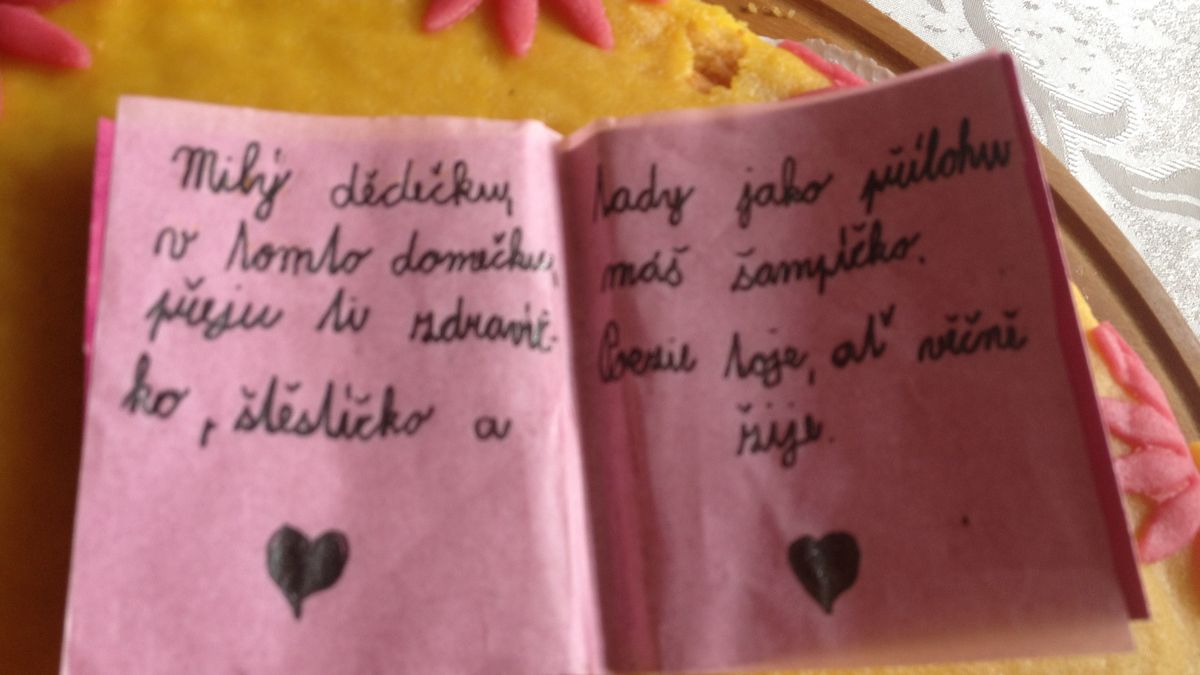 Milý dědečku,
v tomto domečku,
přeju ti zdravíč-
ko, štěstíčko a
tady jako přílohu
máš šampíčko.
Poezie tvoje, ať věčně
žije.